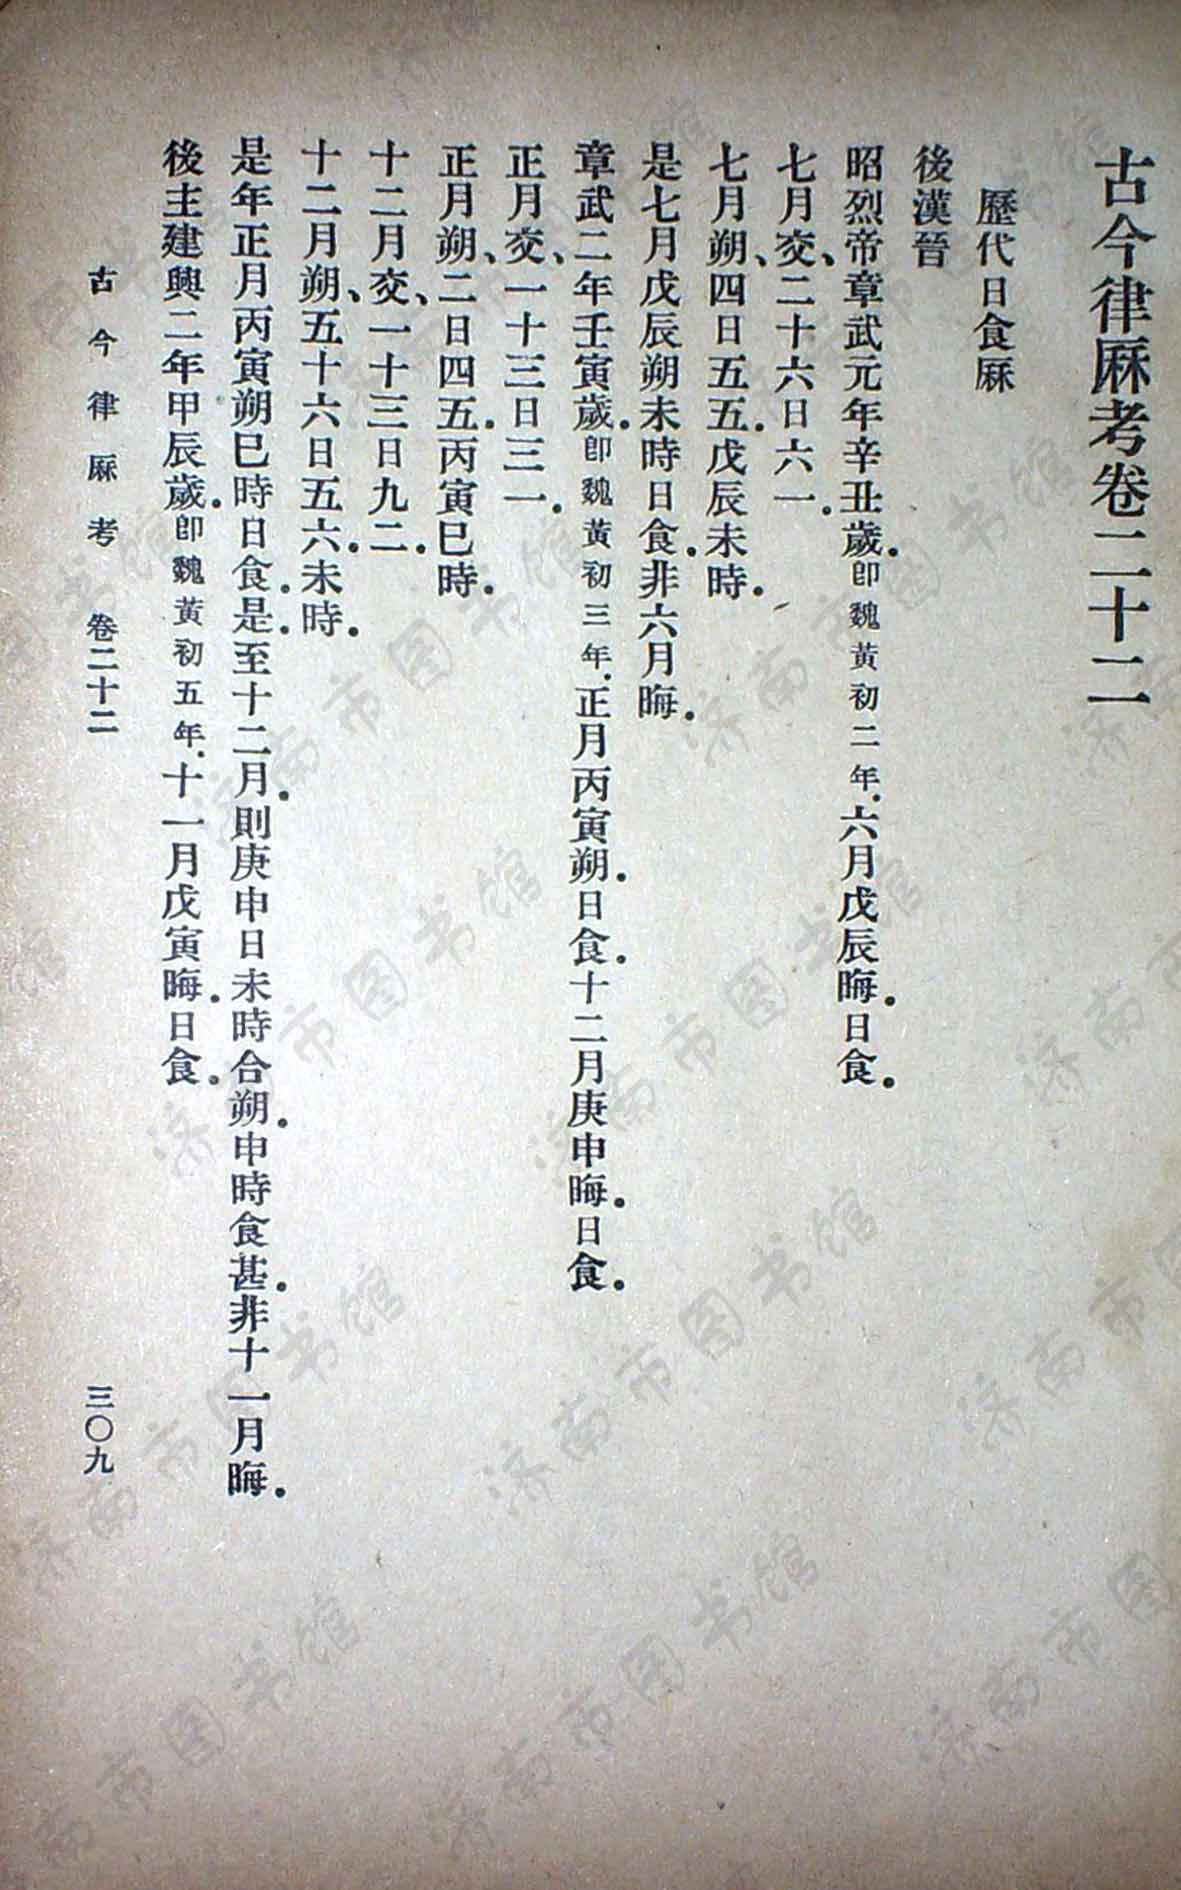 古今律厤考卷二十二
歷代日食厤
後漢晉
昭烈帝章武元年辛丑歲。卽魏黃初二年.六月戊辰晦。日食。
七月交、二十六日六一。
七月朔、四日五五。戊辰未時。
是七月戊辰朔未時日食。非六月晦。
章武二年壬寅歲。卽魏黃初三年.正月丙寅朔。日食。十二月庚申晦。日食。
正月交、一十三日三一。
正月朔、二日四五。丙寅巳時。
十二月交、一十三日九二。
十二月朔、五十六日五六。未時。
是年正月丙寅朔巳時日食。是。至十二月。則庚申日未時合朔。申時食甚。非十一月晦。
後主建興二年甲辰歲。卽魏黃初五年.十一月戊寅晦。日食。
古今律厤考 卷二十二 三〇九
济南市图书馆